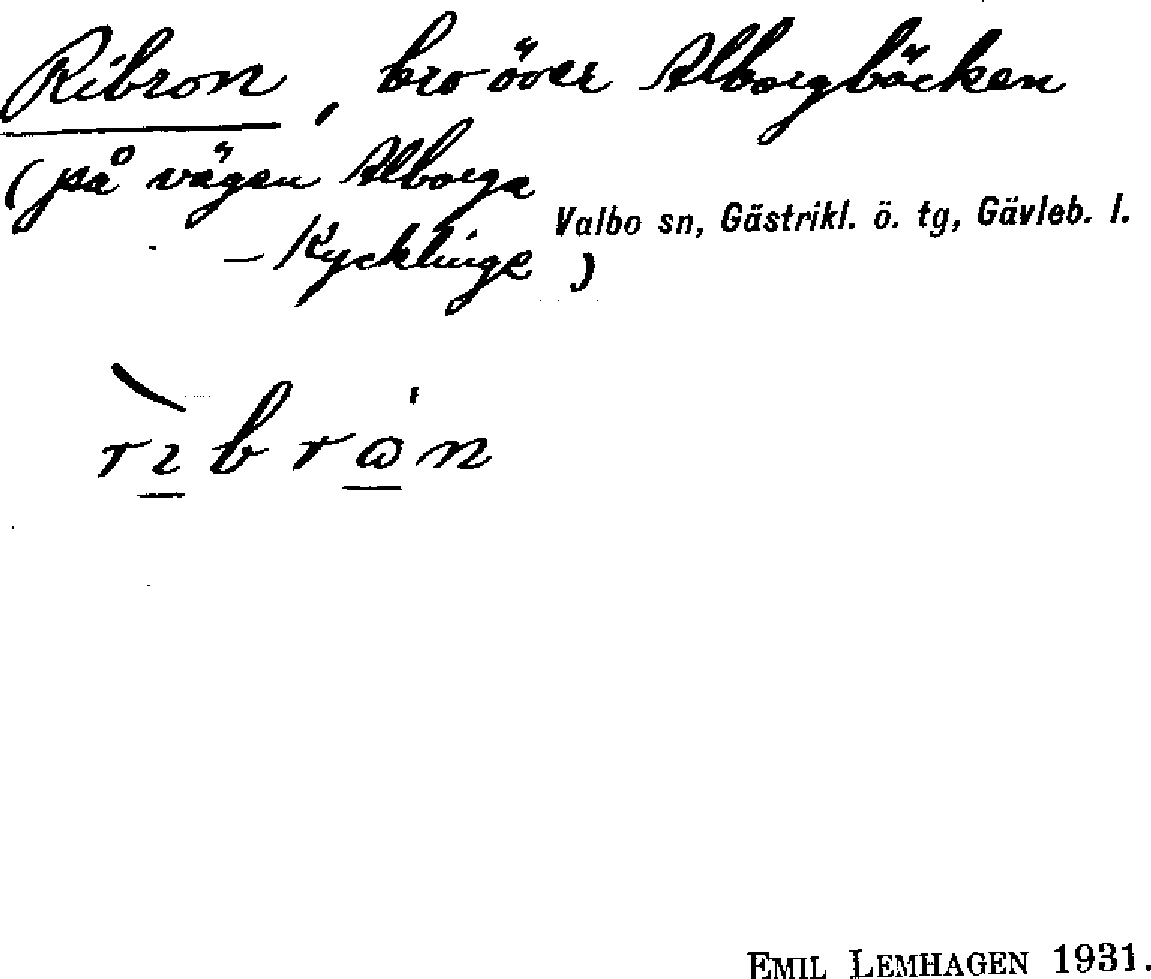 Ribron, bro över Alborgbäcken
(på vägen Alborga
Valbo sn, Gästrikl. ö. tg, Gävleb. l.
- Kycklinge)
Emil Lemhagen 1931.